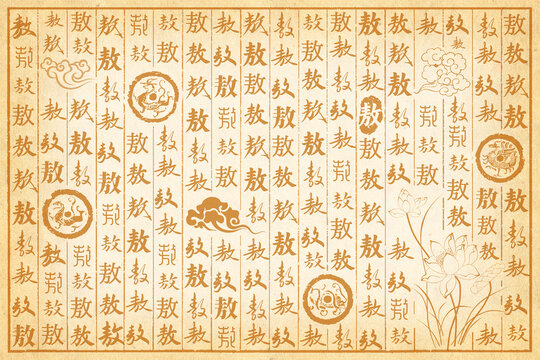 敖敖敖敖敖敖敖敖敖敖敖敖
敖敖敖敖敖敖敖敖敖敖
敖敖敖敖敖敖
敖敖敖敖敖
敖敖敖敖敖敖敖敖敖敖敖
敖敖敖敖敖敖敖敖敖敖敖敖
敖敖敖敖敖敖敖敖敖敖敖
敖敖敖敖敖敖敖敖敖敖
敖敖敖敖敖敖敖敖敖敖敖敖
敖敖敖敖敖敖敖敖敖敖敖敖
敖敖敖敖敖敖敖敖敖敖敖
敖敖敖敖敖敖敖敖敖敖敖
敖敖敖敖敖敖敖敖敖敖敖敖
敖敖敖敖敖敖敖敖敖敖敖
敖敖敖敖敖敖敖敖敖敖敖敖
敖敖敖敖敖敖敖敖敖敖
敖敖敖敖敖敖敖敖敖
敖敖敖敖敖敖敖敖敖敖敖敖